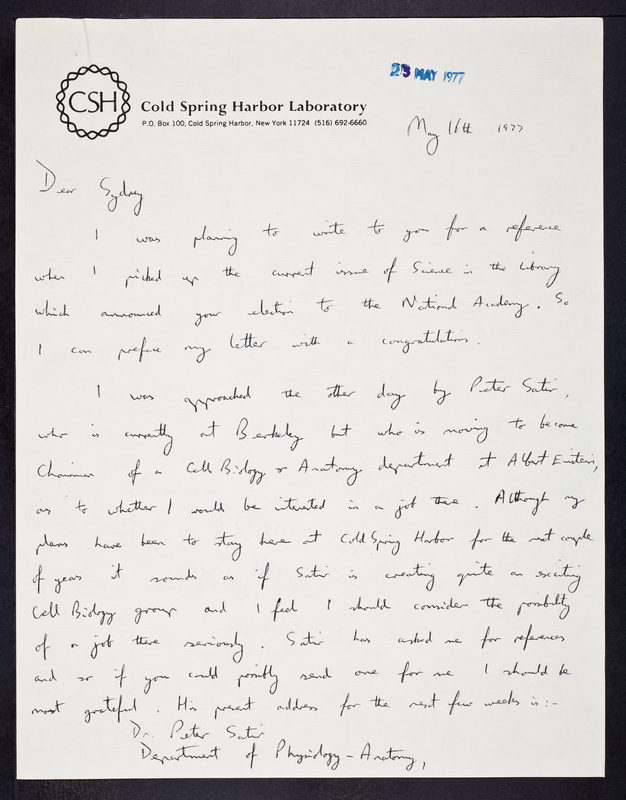 23 MAY 1977
CSH
Cold Spring Harbor Laboratory
P.O. Box 100, Cold Spring Harbor, New York 11724 (516) 692-6660
May 16th 1977
Dear Sydney
I was planning to write to you for a reference
when I picked up the current issue of Science in the Library
which announced your election to the National Academy. So
I can preface my letter with a congratulations.
I was approached the other day by Peter Satir,
who is currently at Berkeley but who is moving to become
Chairman of a Cell Biology & Anatomy department at Albert Einstein,
as to whether I would be interested in a job there. Although my
plans have been to stay here at Cold Spring Harbor for the next couple
of years it sounds as if Satir is creating quite an exciting
Cell Biology group and I feel I should consider the possibility
of a job there seriously. Satir has asked me for references
and so if you could possibly send one for me I should be
most grateful. His present address for the next few weeks is:-
Dr. Peter Satir
Department of Physiology-Anatomy,